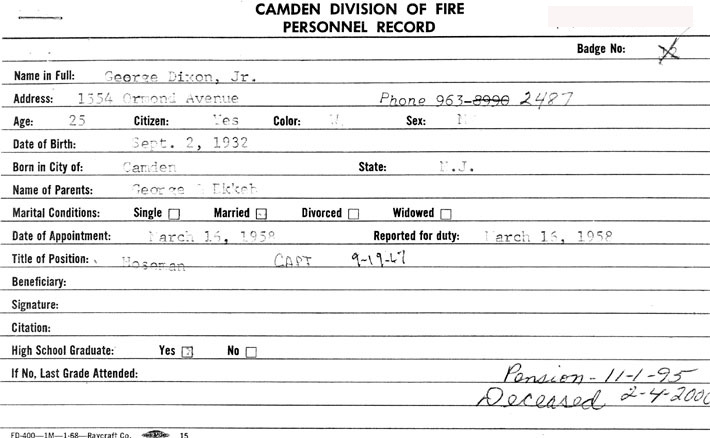 CAMDEN DIVISION OF FIRE
PERSONNEL RECORD
Badge No:
Name in Full: George Dixon, Jr.
Address: 1354 Ormond Avenue Phone 963-8990 2487
Age: 25 Citizen: Yes Color: W Sex: M
Date of Birth: Sept. 2, 1932
Born in City of: Camden State: N.J.
Name of Parents: George
Marital Conditions: Single Married Divorced Widowed
Date of Appointment: March 16, 1958 Reported for duty: March 16, 1958
Title of Position: Hoseman CAPT 9-19-67
Beneficiary:
Signature:
Citation:
High School Graduate: Yes No
If No, Last Grade Attended: Pension - 11-1-95
Deceased 2-4-2000
FD-400—1M—1-68—Raycraft Co. 15